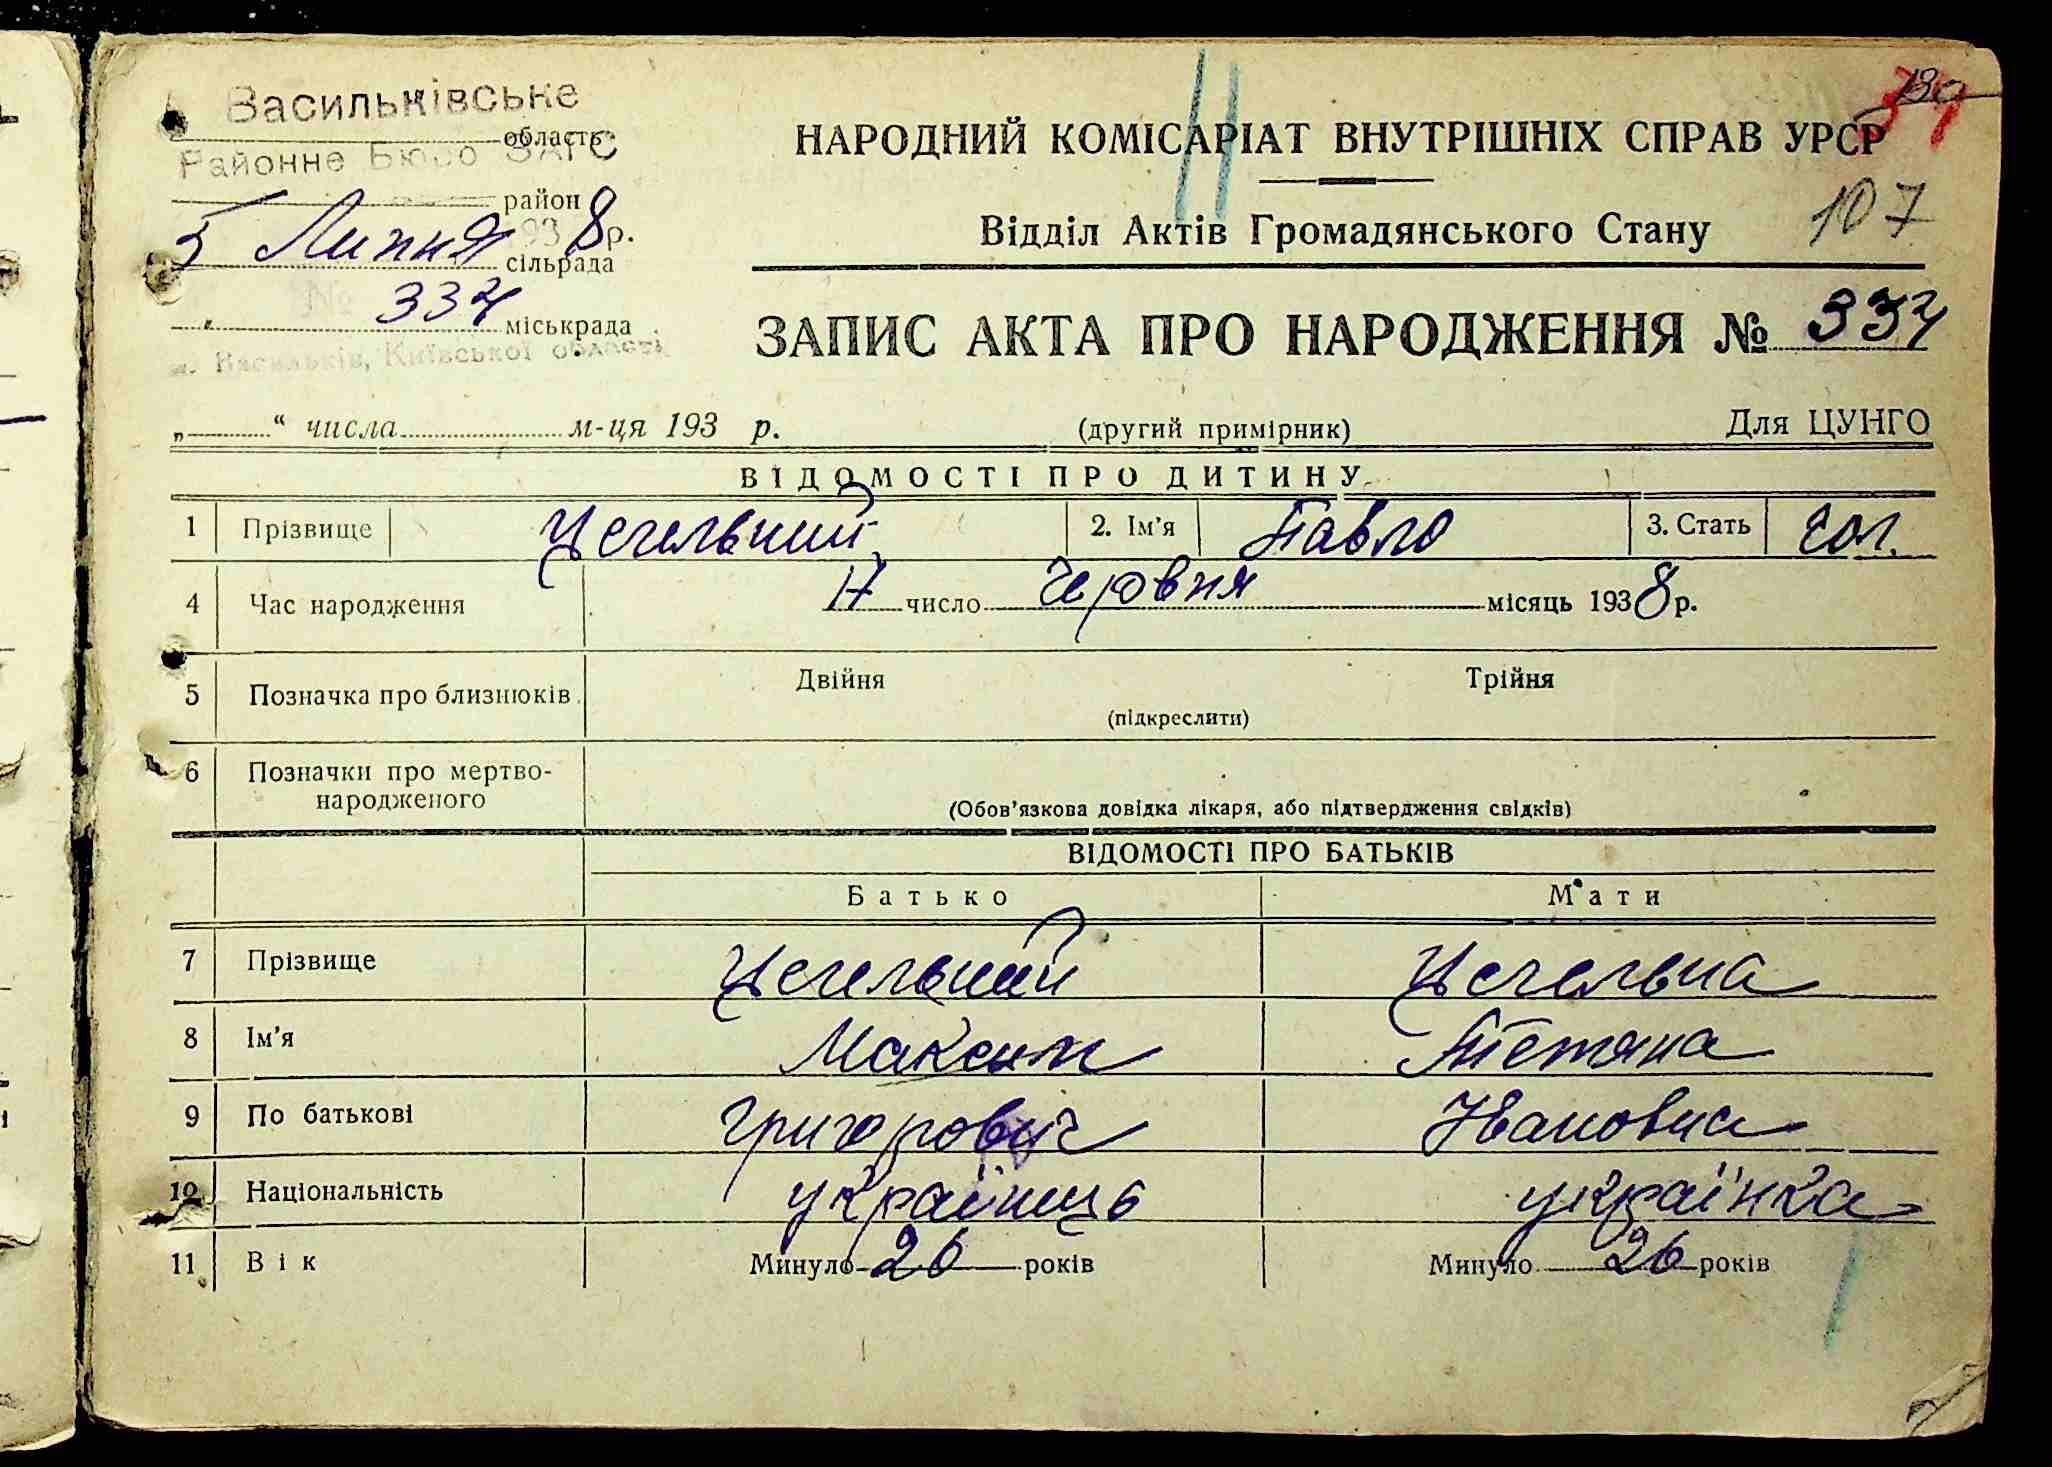 Васильківське
область
Районне Бюро ЗАГС
район
5 Липня 1938 р.
сільрада
№ 334
міськрада
м. Васильків, Київської області
НАРОДНИЙ КОМІСАРІАТ ВНУТРІШНІХ СПРАВ УРСР
107
Відділ Актів Громадянського Стану
ЗАПИС АКТА ПРО НАРОДЖЕННЯ № 334
„ “ числа м-ця 193 р. (другий примірник) Для ЦУНГО
ВІДОМОСТІ ПРО ДИТИНУ
1 Прізвище Цегельний 2. Ім’я Павло 3. Стать чол.
4 Час народження 17 число Червня місяць 1938 р.
5 Позначка про близнюків Двійня Трійня
(підкреслити)
6 Позначки про мертво-
народженого
(Обов’язкова довідка лікаря, або підтвердження свідків)
ВІДОМОСТІ ПРО БАТЬКІВ
Батько Мати
7 Прізвище Цегельний Цегельна
8 Ім’я Максим Тетяна
9 По батькові Григорович Івановна
10 Національність українць українка
11 Вік Минуло 26 років Минуло 26 років